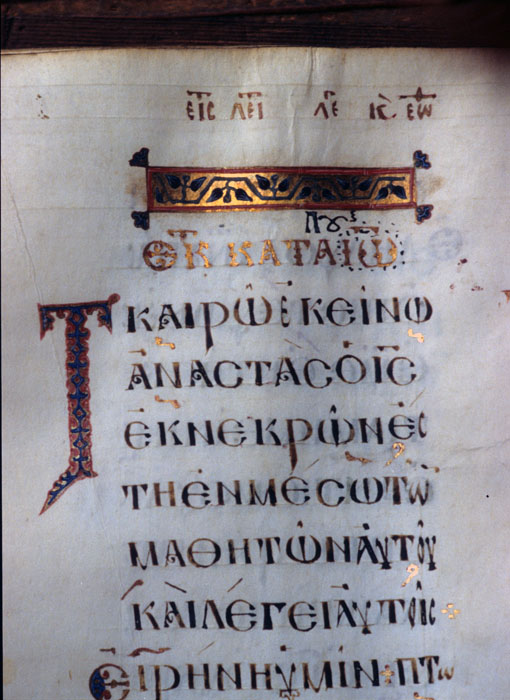 ΕΚ ΚΑΤΑ ΙΩ
Τ ΚΑΙΡΩ ΕΚΕΙΝΩ
ΑΝΑCΤΑC Ο ΙC
ΕΚ ΝΕΚΡΩΝ ΕC
ΤΗ ΕΝ ΜΕCΩ ΤΩ
ΜΑΘΗΤΩΝ ΑΥΤΟΥ
ΚΑΙ ΛΕΓΕΙ ΑΥΤΟΙC
ΕΙΡΗΝΗ ΥΜΙΝ· ΠΤΩ